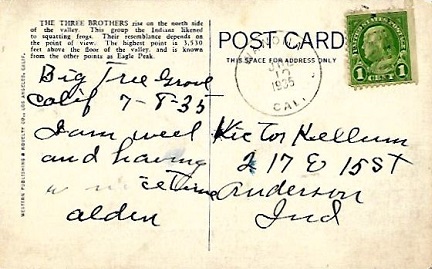 THE THREE BROTHERS rise on the north side
of the valley. This group the Indians likened
to squatting frogs. Their resemblance depends on
the point of view. The highest point is 3,530
feet above the floor of the valley, and is known
from the other points as Eagle Peak.
WESTERN PUBLISHING & NOVELTY CO., LOS ANGELES, CALIF.
Big Tree Grove
Calif 7-8-35
I am well
and having
a nice time
alden
POST CARD
THIS SPACE FOR ADDRESS ONLY
1935
CAL.
UNITED STATES POSTAGE
1 CENT 1
Victor Kellum
217 E 15 St
Anderson
Ind